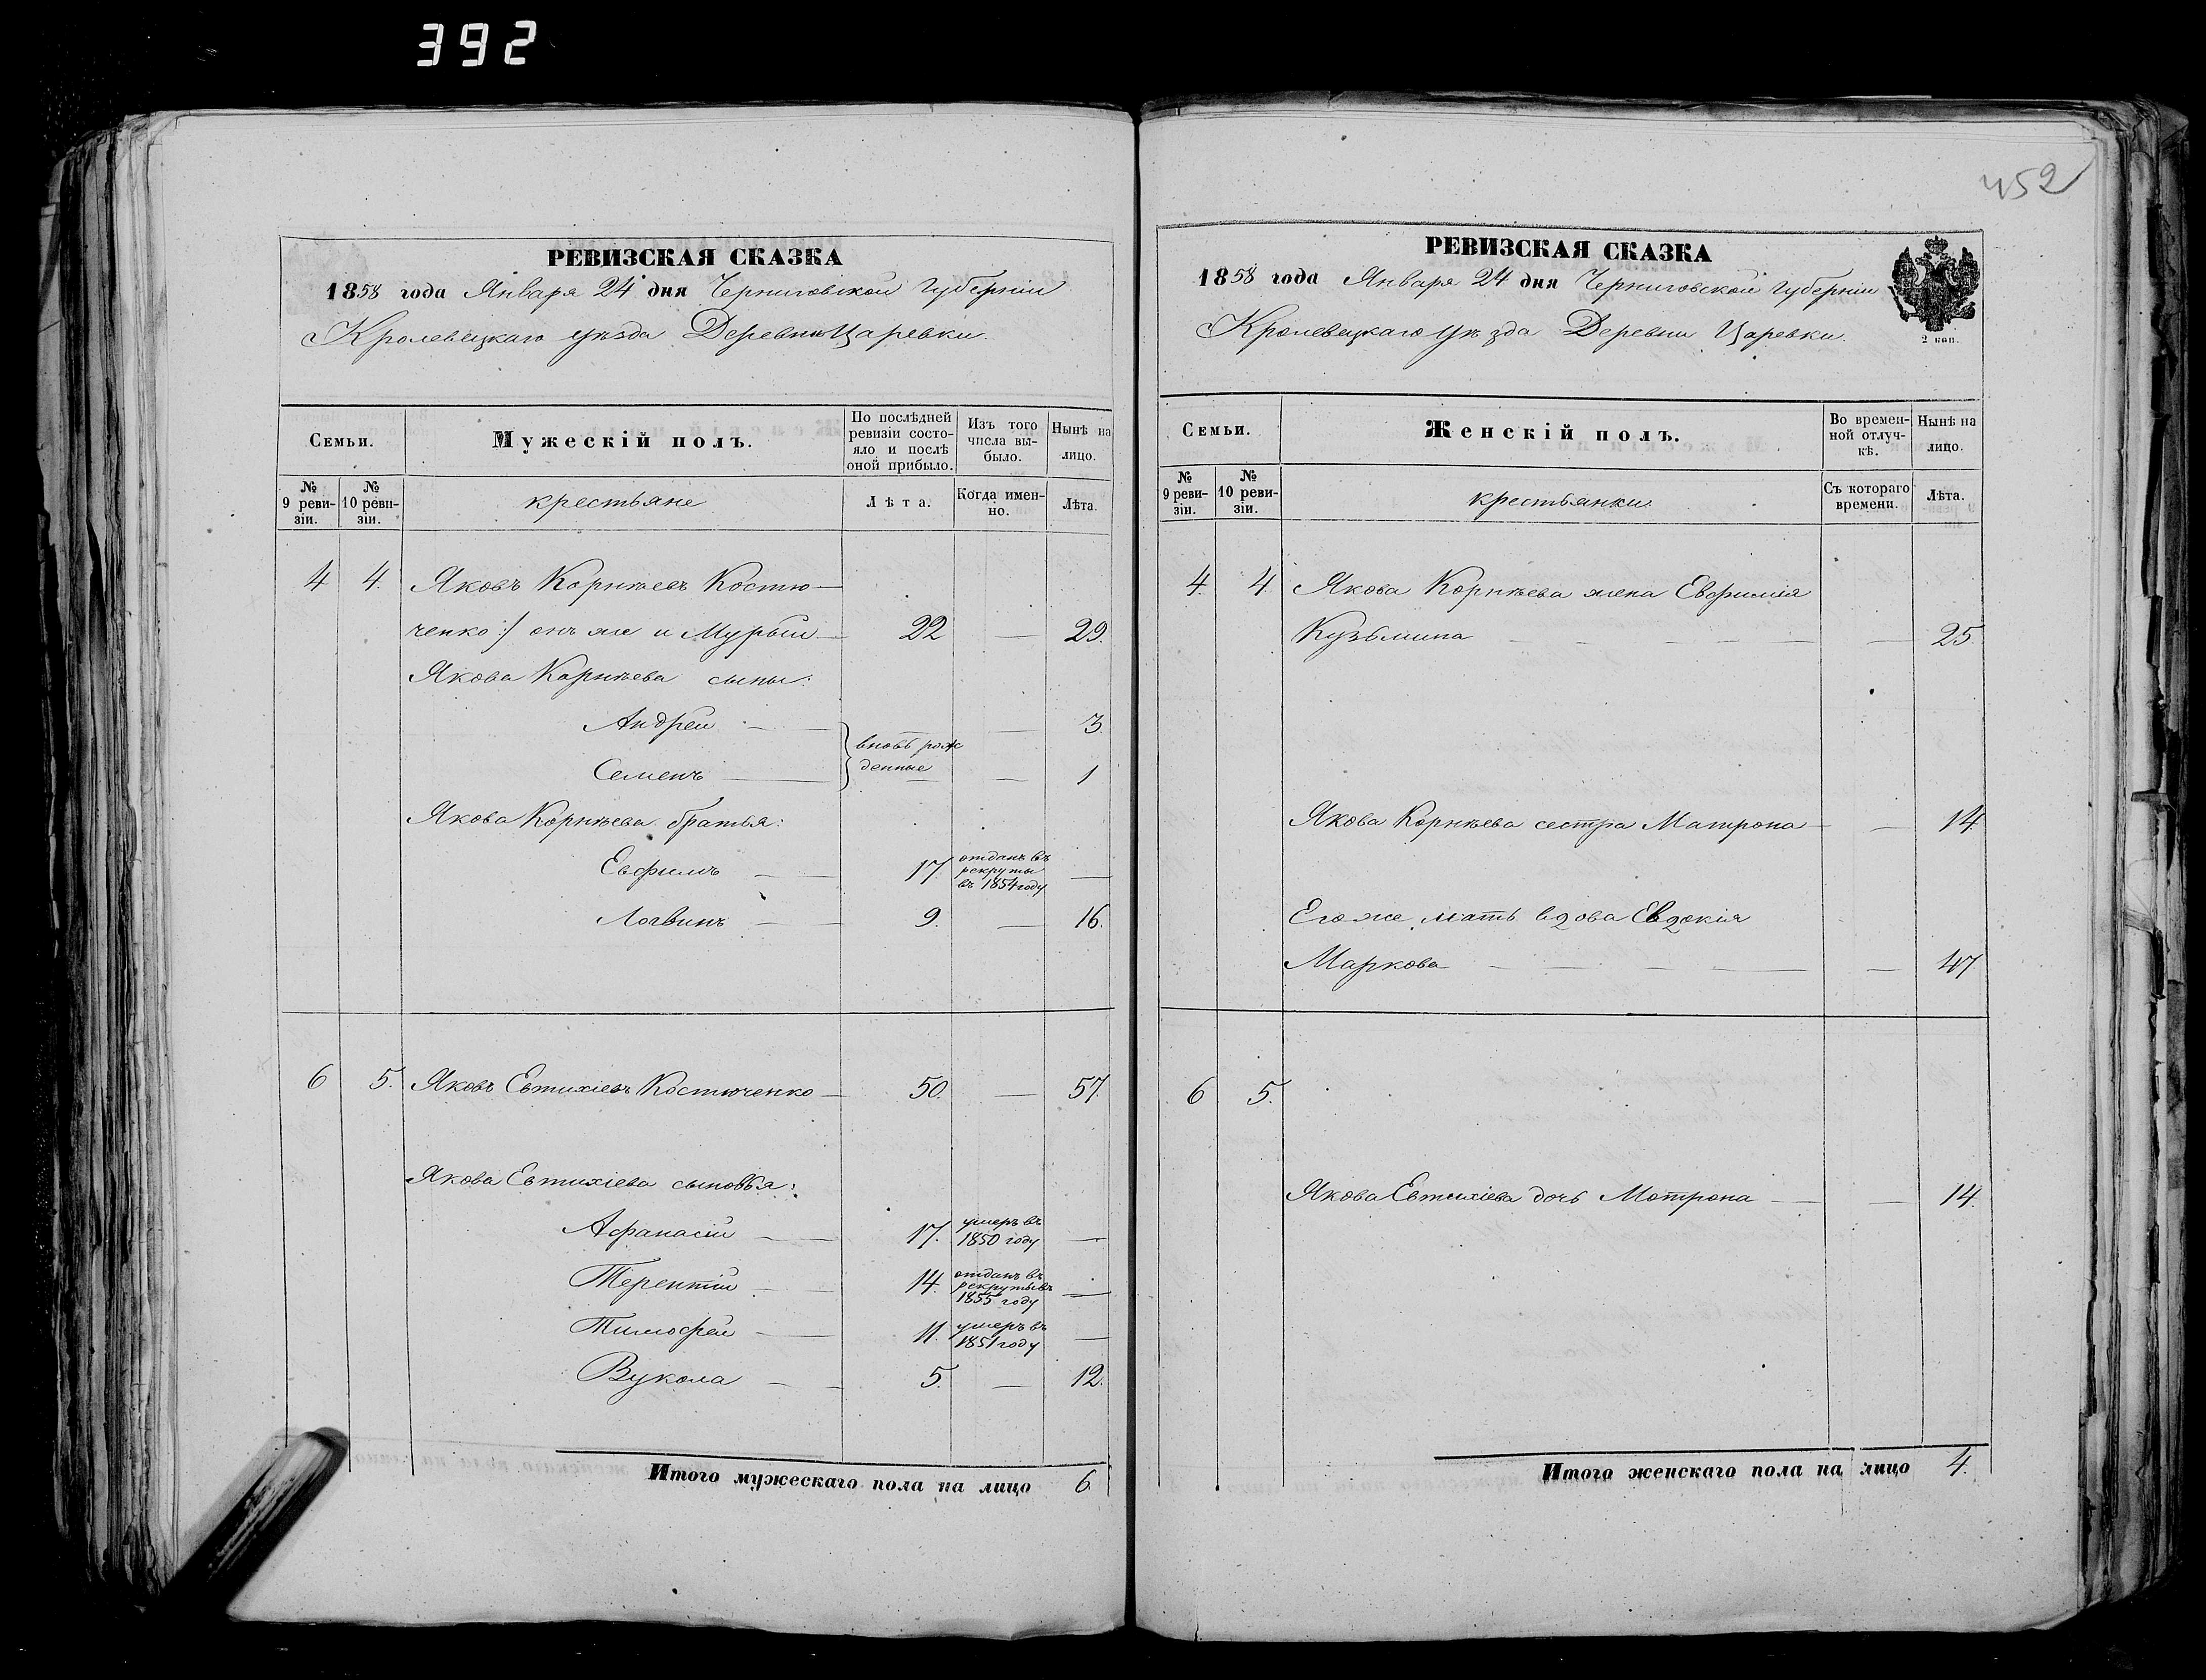 392
452
РЕВИЗСКАЯ СКАЗКА
1858 года Января 24 дня Черниговской Губерніи
Кролевецкаго уѣзда Деревни Царевки.
Семьи.
Мужескій полъ.
По послѣдней ревизіи состояло и послѣ оной прибыло.
Изъ того числа выбыло.
Нынѣ на лицо.
№ 9 ревизіи.
№ 10 ревизіи.
крестьяне
Лѣта.
Когда именно.
Лѣта.
4 4. Яковъ Корнѣевъ Костю—
ченко :/ онъ же и Мурый — 22 — 29.
Якова Корнѣева сыны:
Андрей — вновь рож — 3.
Семенъ — денные — 1
Якова Корнѣева братья:
Евфимъ — 17. отданъ въ рекруты въ 1854 году —
Логвинъ — 9. — 16.
6 5. Яковъ Евтихіевъ Костюченко — 50. — 57.
Якова Евтихіева сыновья:
Афанасій — 17. умеръ въ 1850 году —
Терентій — 14. отданъ въ рекруты въ 1855 году —
Тимофей — 11. умеръ въ 1851 году —
Вукола — 5. — 12.
Итого мужескаго пола на лицо 6.
РЕВИЗСКАЯ СКАЗКА
1858 года Января 24 дня Черниговской Губерніи
Кролевецкаго Уѣзда Деревни Царевки.
2 коп.
Семьи.
Женскій полъ.
Во временной отлучкѣ.
Нынѣ на лицо.
№ 9 ревизіи.
№ 10 ревизіи.
крестьянки.
Съ котораго времени.
Лѣта.
4. 4. Якова Корнѣева жена Евфимія
Кузьмина — — 25.
Якова Корнѣева сестра Матрона — — 14.
Его же мать вдова Евдокія
Маркова — — 47
6 5.
Якова Евтихіева дочь Мотрона — — 14.
Итого женскаго пола на лицо 4.